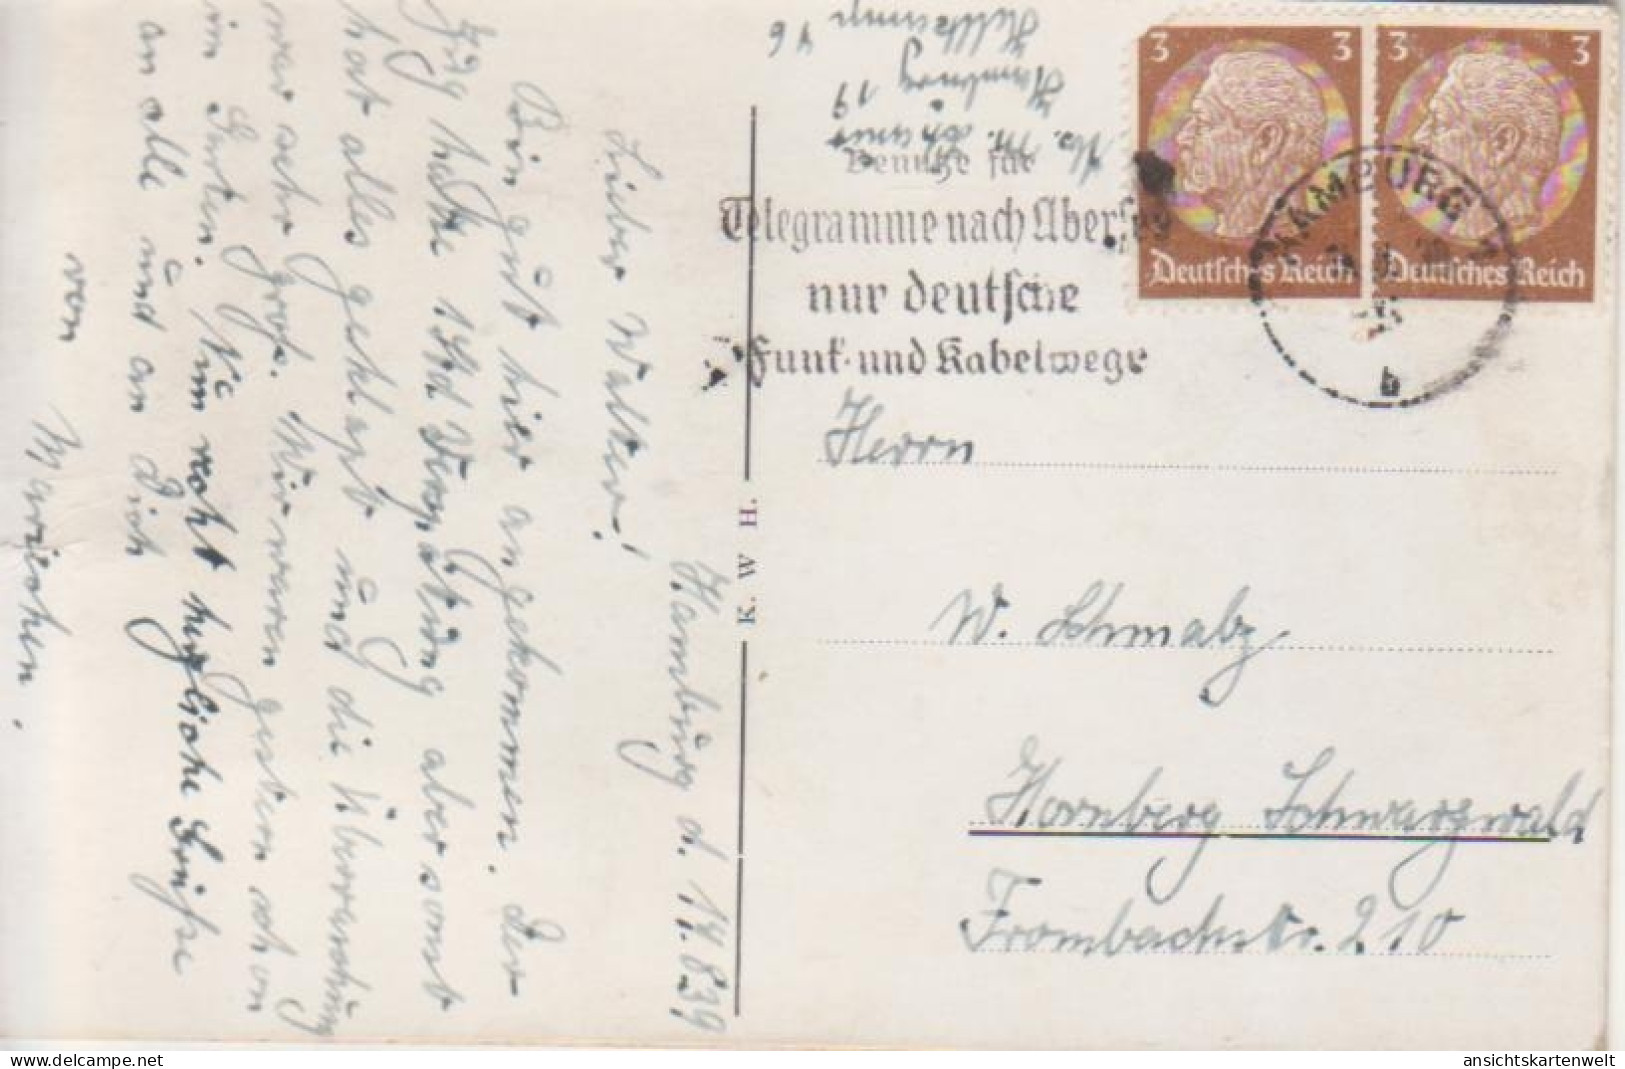 Hamburg d. 14.8.39
Lieber Walter!
Bin gut hier angekommen. Der
Zug hatte 1 Std Verspätung aber sonst
hat alles geklappt und die Überraschung
war sehr groß. Wir waren gestern schon
im Garten. Nun recht herzliche Grüße
an alle und an Dich
von
Mariechen.
K. W. H.
Hamburg 19
46
3 3
3 3
Deutsches Reich
Deutsches Reich
HAMBURG
b
Benutze für
Telegramme nach Übersee
nur deutsche
Funk- und Kabelwege
Herrn
W. Schmalz
Hornberg Schwarzwald
Frombachstr. 210
ansichtskartenwelt
www.delcampe.net